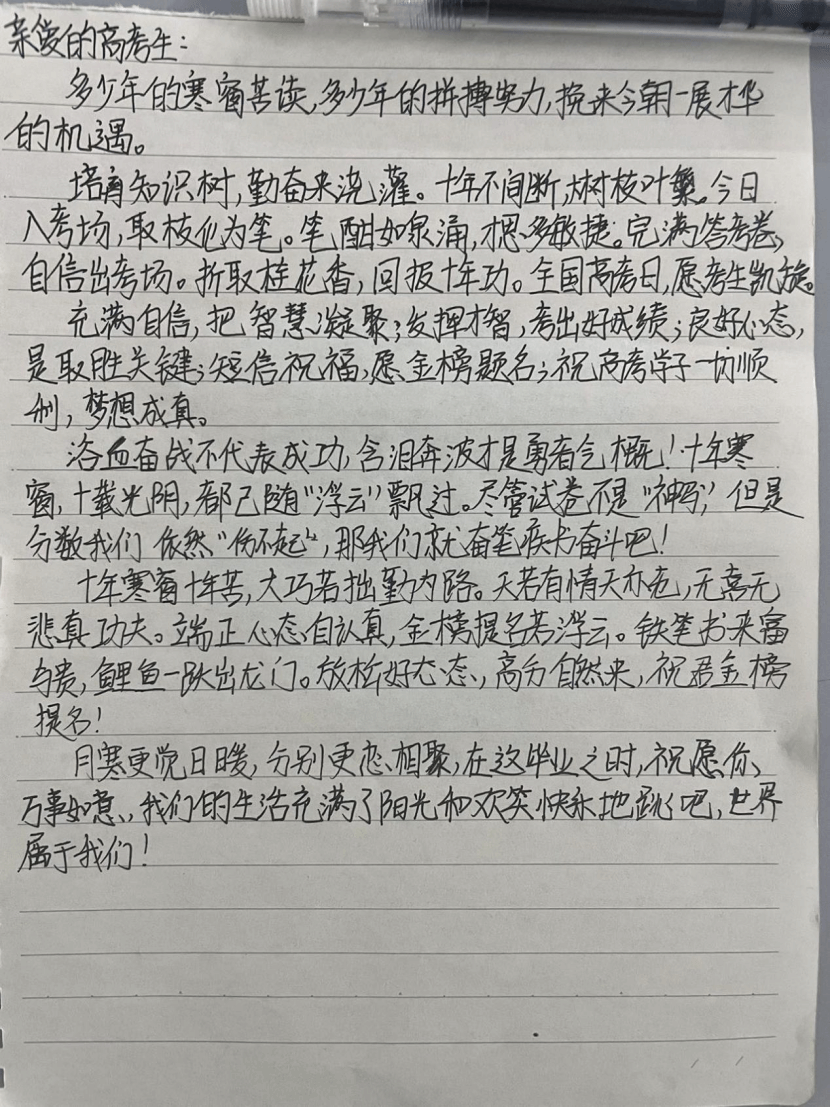 亲爱的高考生：
多少年的寒窗苦读，多少年的拼搏努力，换来今朝一展才华
的机遇。
培育知识树，勤奋来浇灌。十年不间断，树枝叶繁。今日
入考场，取枝化为笔。笔酣如泉涌，才思多敏捷。完满答考卷，
自信出考场。折取桂花香，回报十年功。全国高考日，愿考生凯旋。
充满自信，把智慧凝聚；发挥才智，考出好成绩；良好心态，
是取胜关键；短信祝福，愿金榜题名；祝高考学子一切顺
利，梦想成真。
浴血奋战不代表成功，含泪奔波才是勇者气概！十年寒
窗，十载光阴，都已随“浮云”飘过。尽管试卷不是“神马”，但是
分数我们依然“伤不起”，那我们就奋笔疾书奋斗吧！
十年寒窗十年苦，大巧若拙勤为路。天若有情天亦老，无喜无
悲真功夫。端正心态自认真，金榜提名若浮云。铁笔书来富
与贵，鲤鱼一跃出龙门。放松好心态，高分自然来，祝君金榜
提名！
月寒更觉日暖，分别更恋相聚，在这毕业之时，祝愿你
万事如意，我们的生活充满了阳光和欢笑快乐地跳吧，世界
属于我们！